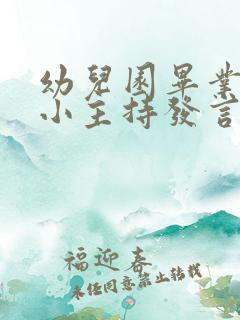 幼兒園畢業
小主持發言
福迎春
未經同意禁止转载